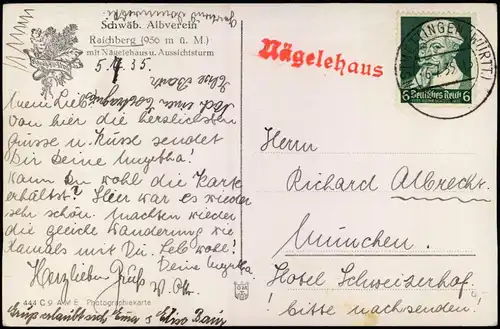 Schwäb. Albverein
Raichberg (956 m ü. M.)
mit Nägelehaus u. Aussichtsturm
5. 35.
Mein Lieb
Von hier die herzlichsten
Grüsse u. Küsse sendet
Dir Deine
Kann Du wohl die Karte
erhältst? Hier war es wieder
sehr schön. Machten wieder
die gleiche Wanderung wie
damals mit Dir. Leb wohl!
Deine
Herzlichen Gruß
444 C 9 Photographiekarte
erlaubt sich
Nägelehaus
INGEN (WÜRTT)
Deutsches Reich
6 6
Herrn
Richard Albrecht.
München.
Hotel Schweizerhof.
! bitte nachsenden!